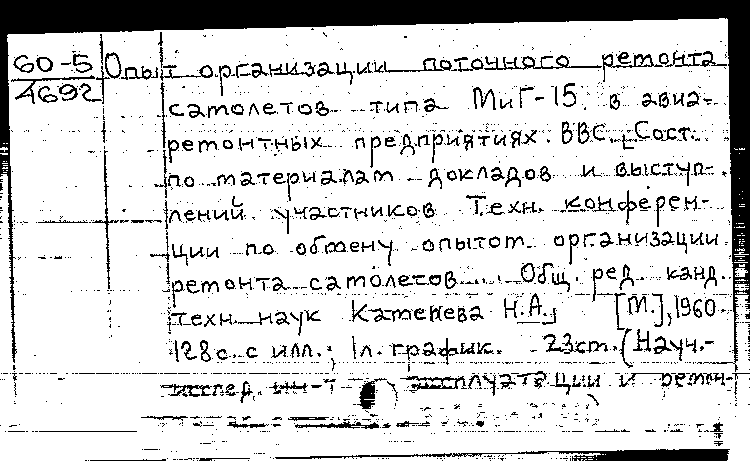 60-5 Опыт организации поточного ремонта
4692 самолетов типа МиГ-15 в авиа-
ремонтных предприятиях ВВС. [Сост.
по материалам докладов и выступ-
лений участников Техн. конферен-
ции по обмену опытом организации
ремонта самолетов... Общ. ред. канд.
техн. наук Каменева Н.А.] [М.], 1960.
128 с. с илл.; 1 л. график. 23 см. (Науч.-
исслед. ин-т эксплуатации и ремон-